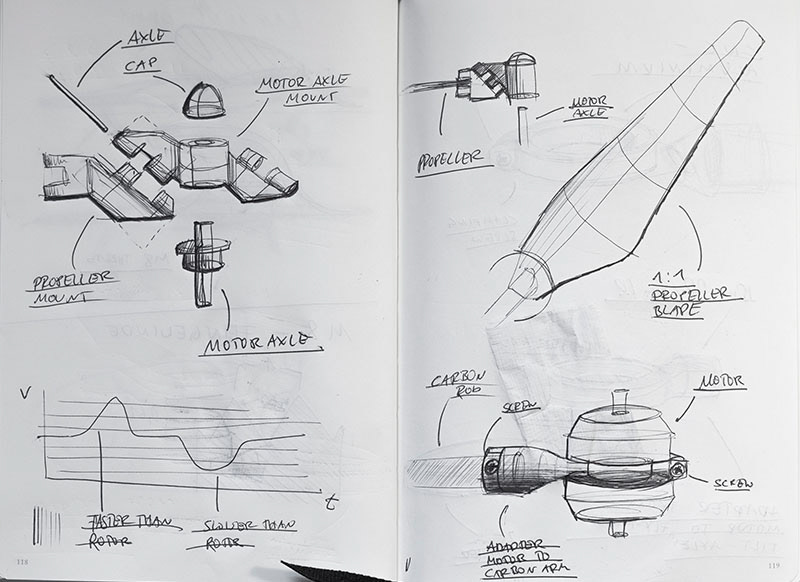 AXLE
CAP
MOTOR AXLE
MOUNT
PROPELLER
MOUNT
MOTOR AXLE
V
t
FASTER THAN
ROTOR
SLOWER THAN
ROTOR
118
MOTOR
AXLE
PROPELLER
1:1
PROPELLER
BLADE
CARBON
ROD
SCREW
MOTOR
SCREW
ADAPTER
MOTOR TO
CARBON ARM
119